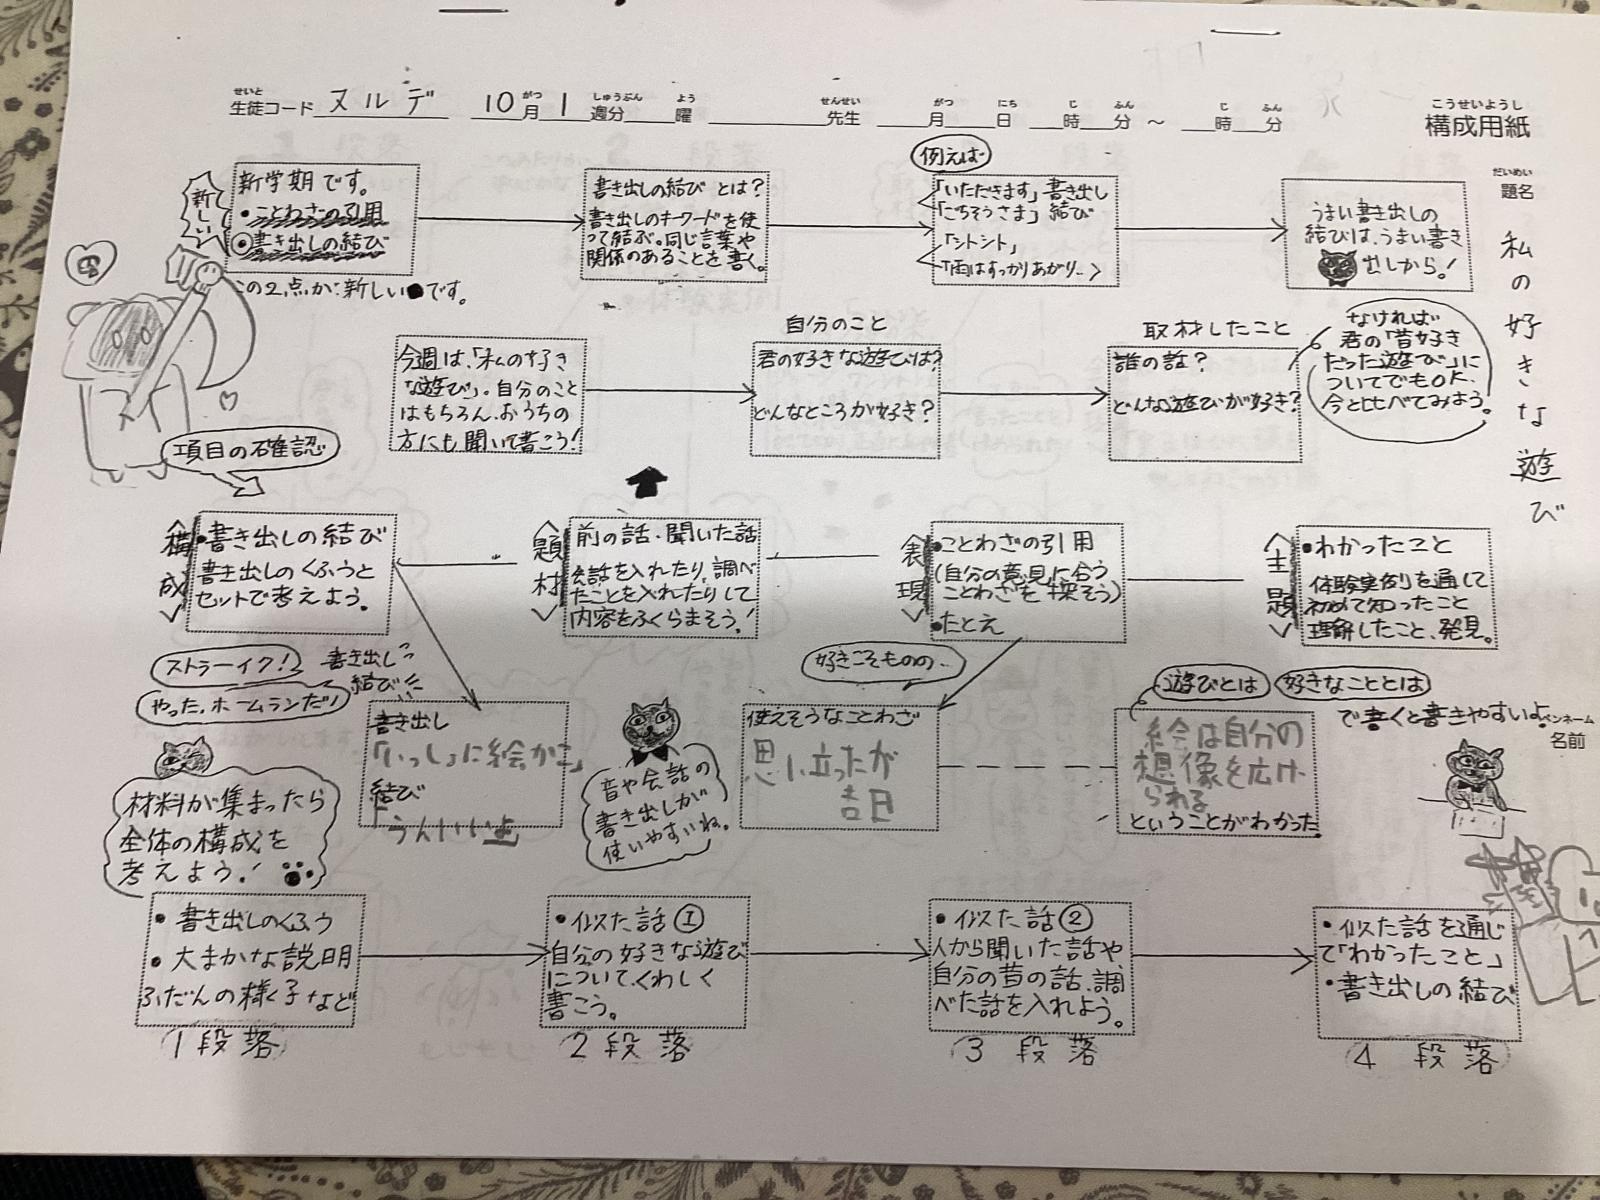 せいと がつ しゅうぶん よう せんせい がつ にち じ ふん じ ふん こうせいようし
生徒コード ヌルデ 10月1週分 曜 先生 月 日 時 分 ～ 時 分 構成用紙
だいめい
題名
私の好きな遊び
新しい
新学期です。
・ことわざの引用
◉書き出しの結び
この2点が新しい●です。
書き出しの結びとは？
書き出しのキーワードを使
って結ぶ。同じ言葉や
関係のあることを書く。
例えば
「いただきます」書き出し
「ごちそうさま」結び
「シトシト」
「雨はすっかりあがり…」
うまい書き出しの
結びは、うまい書き
出しから！
今週は、「私の好き
な遊び」。自分のこと
はもちろん、おうちの
方にも聞いて書こう！
自分のこと
君の好きな遊びは？
どんなところが好き？
取材したこと
誰の話？
どんな遊びが好き？
なければ
君の「昔好き
だった遊び」に
ついてでもOK、
今と比べてみよう。
項目の確認
＜構成＞
・書き出しの結び
書き出しのくふうと
セットで考えよう。
＜題材＞
前の話・聞いた話
会話を入れたり、調べ
たことを入れたりして
内容をふくらまそう！
＜表現＞
・ことわざの引用
（自分の意見に合う
ことわざを探そう）
・たとえ
＜主題＞
・わかったこと
体験実例を通して
初めて知ったこと
理解したこと、発見。
ストラーイク！
やった、ホームランだ！
書き出し
結び
書き出し
「いっしょに絵かこ」
結び
「うんいいよ」
音や会話の
書き出しが
使いやすいね。
好きこそものの…
使えそうなことわざ
思い立ったが
吉日
遊びとは
好きなこととは
で書くと書きやすいよ
絵は自分の
想像を広げ
られる
ということがわかった。
ペンネーム
名前
材料が集まったら
全体の構成を
考えよう！
・書き出しのくふう
・大まかな説明
ふだんの様子など
1段落
・似た話①
自分の好きな遊び
について、くわしく
書こう。
2段落
・似た話②
人から聞いた話や、
自分の昔の話、調
べた話を入れよう。
3段落
・似た話を通じ
て「わかったこと」
・書き出しの結び
4段落